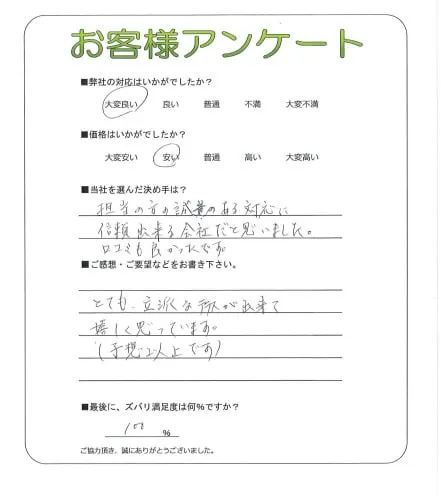 お客様アンケート
■弊社の対応はいかがでしたか?
大変良い 良い 普通 不満 大変不満
■価格はいかがでしたか?
大変安い 安い 普通 高い 大変高い
■当社を選んだ決め手は?
担当の方の誠意のある対応に
信頼出来る会社だと思いました。
口コミも良かったです。
■ご感想・ご要望などをお書き下さい。
とても、立派なテラスが出来て
嬉しく思っています。
(予想以上です)
■最後に、ズバリ満足度は何%ですか?
100 %
ご協力頂き、誠にありがとうございました。